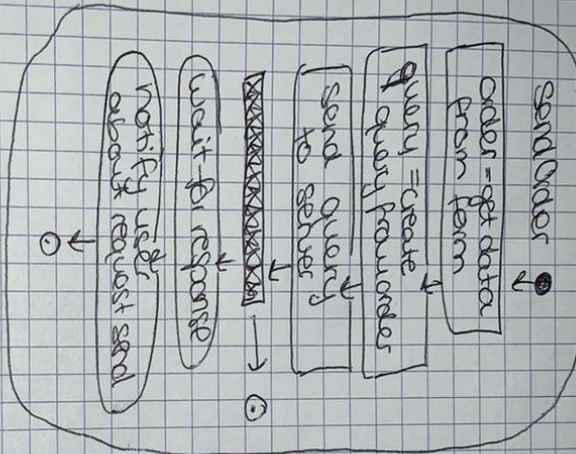 SendOrder
order = get data
from form
query = create
queryfromorder
send query
to server
wait for response
notify user
about request send